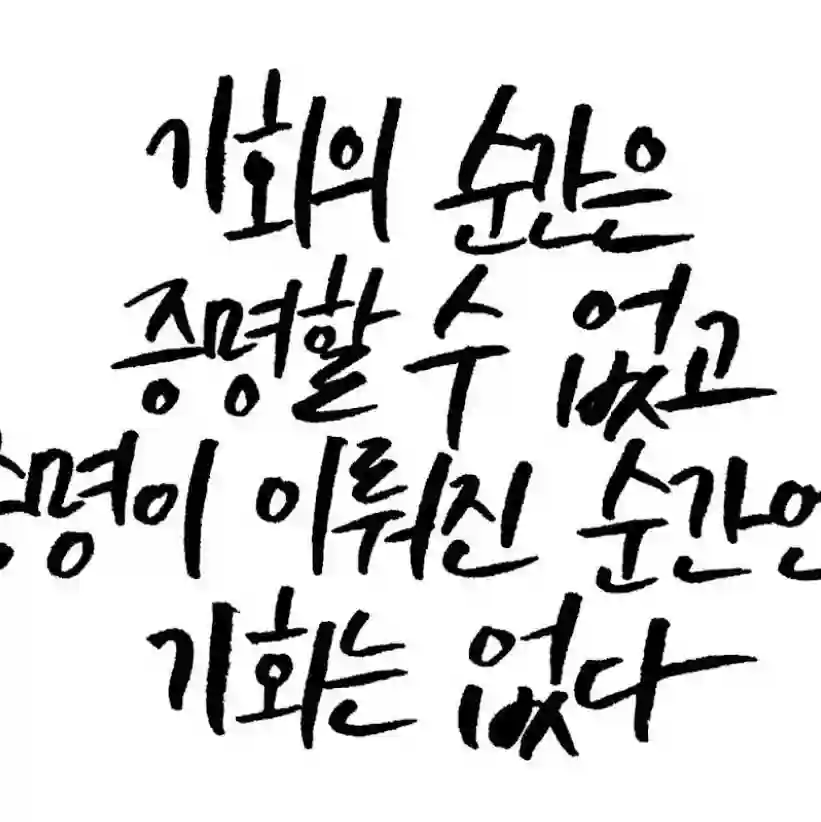 기회의 순간은
증명할 수 없고
증명이 이뤄진 순간엔
기회는 없다